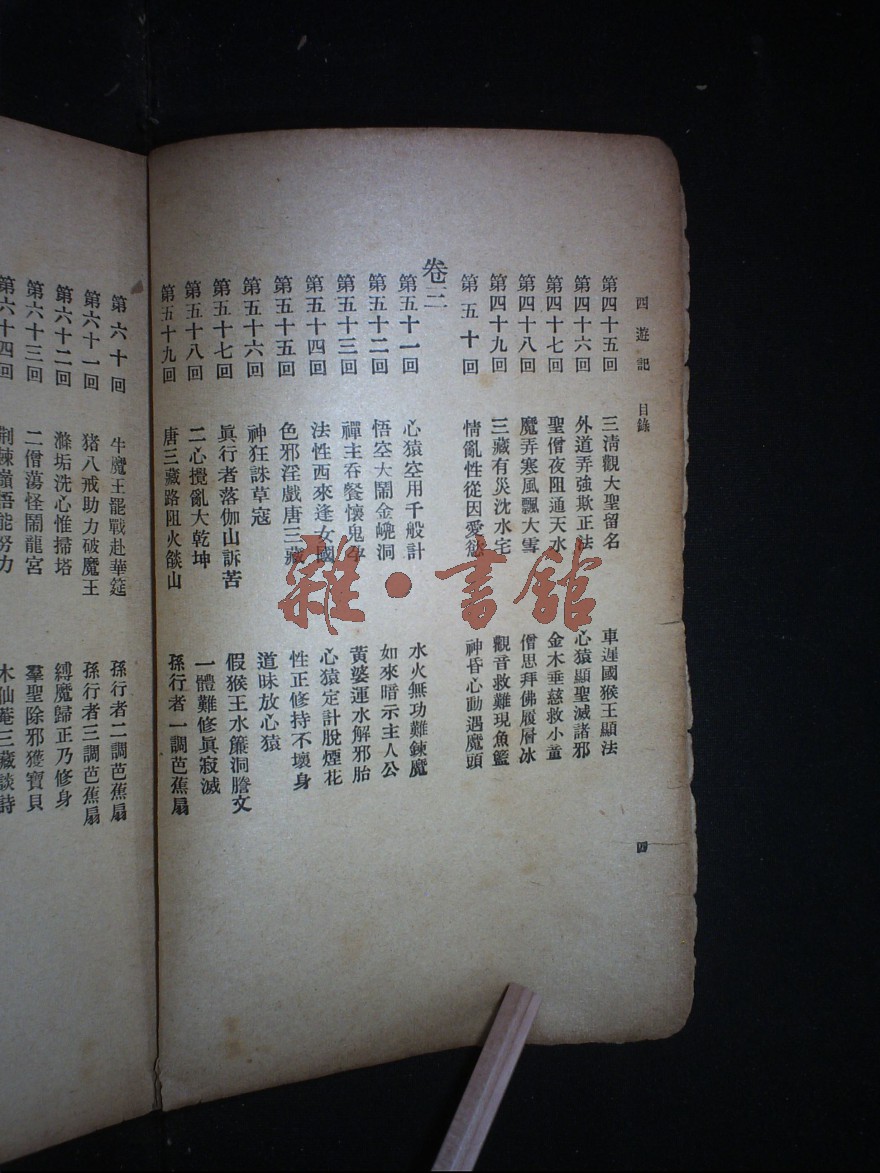 西遊記 目錄
第四十五回 三清觀大聖留名 車遲國猴王顯法
第四十六回 外道弄強欺正法 心猿顯聖滅諸邪
第四十七回 聖僧夜阻通天水 金木垂慈救小童
第四十八回 魔弄寒風飄大雪 僧思拜佛履層冰
第四十九回 三藏有災沈水宅 觀音救難現魚籃
第五十回 情亂性從因愛慾 神昏心動遇魔頭
卷三
第五十一回 心猿空用千般計 水火無功難鍊魔
第五十二回 悟空大鬧金㠋洞 如來暗示主人公
第五十三回 禪主吞餐懷鬼孕 黃婆運水解邪胎
第五十四回 法性西來逢女國 心猿定計脫煙花
第五十五回 色邪淫戲唐三藏 性正修持不壞身
第五十六回 神狂誅草寇 道昧放心猿
第五十七回 眞行者落伽山訴苦 假猴王水簾洞謄文
第五十八回 二心攪亂大乾坤 一體難修眞寂滅
第五十九回 唐三藏路阻火燄山 孫行者一調芭蕉扇
四
第六十回 牛魔王罷戰赴華筵 孫行者二調芭蕉扇
第六十一回 猪八戒助力破魔王 孫行者三調芭蕉扇
第六十二回 滌垢洗心惟掃塔 縛魔歸正乃修身
第六十三回 二僧蕩怪鬧龍宮 羣聖除邪獲寶貝
第六十四回 荆棘嶺悟能努力 木仙菴三藏談詩
雜·書館